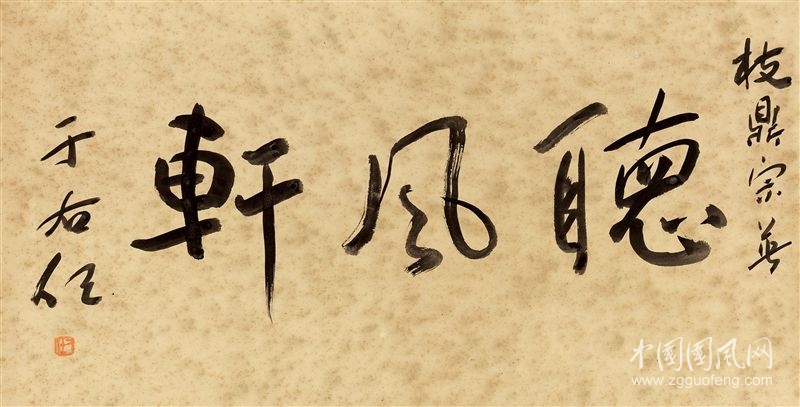 枝鼎宗英
聽風軒
于右任
中国国风网
www.zgguofeng.com